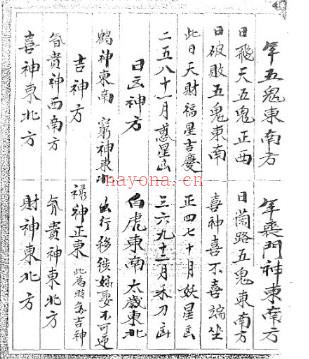 年五鬼東南方 年喪門神東南方
日飛天五鬼正西 日蘭路五鬼東南方
日破敗五鬼東南 喜神喜不喜端坐
此日天財福星吉慶 正四七十月妖星凶
二五八十一月惑星凶 三六九十二月禾刀凶
日凶神方 白虎東南 太歲東北
鶴神東南 窮神東北 出行移徙嫁娶不可逆
吉神方 祿神正東 此為吉神
貴神西南方 貴神東北方
喜神東北方 財神東北方
nayona.cn